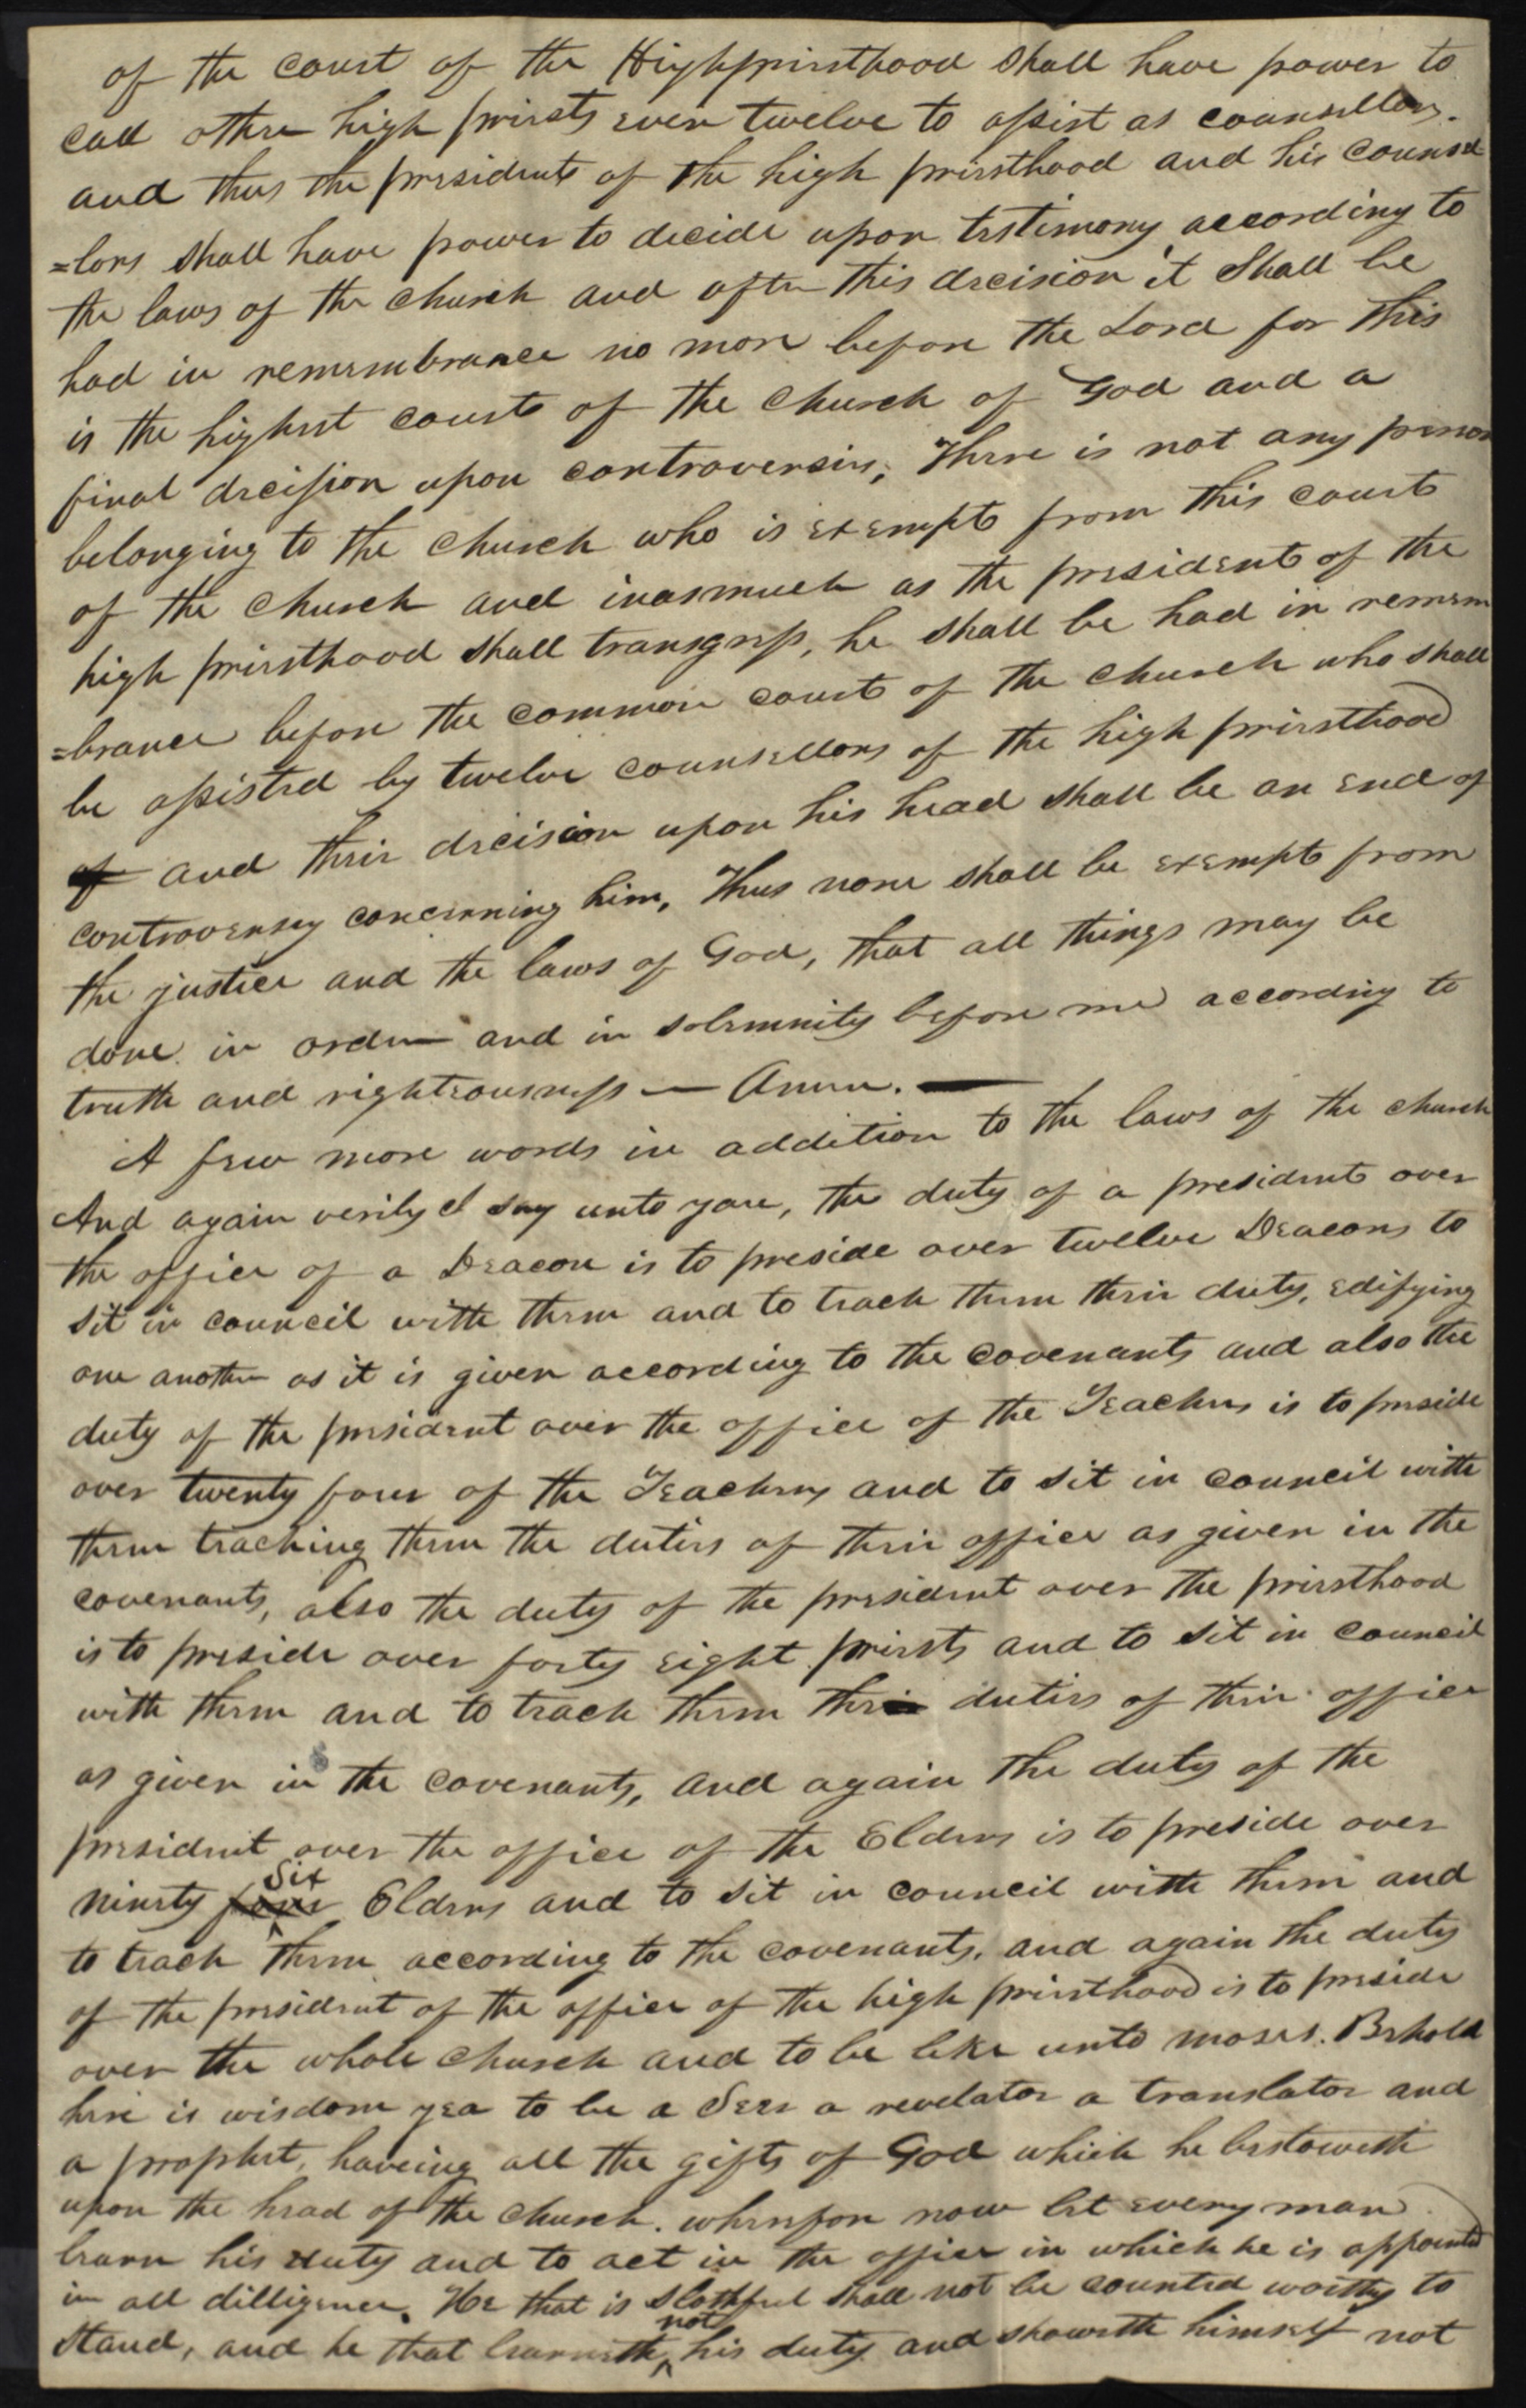 of the court of the Highpriesthood shall have power to
call other high priests even twelve to assist as counsellors.
and thus the presidents of the high priesthood and his counsel
=lors shall have power to decide upon testimony according to
the laws of the church and after this decision it shall be
had in remembrance no more before the Lord for this
is the highest court of the church of God and a
final decission upon controversies, There is not any person
belonging to the church who is exempt from this court
of the church and inasmuch as the president of the
high priesthood shall transgress, he shall be had in remem
=brance before the common court of the church who shall
be assisted by twelve counsellors of the high priesthood
of and their decision upon his head shall be an end of
controversey concerning him, Thus none shall be exempt from
the justice and the laws of God, that all things may be
done in order and in solemnity before me according to
truth and righteousness — Amen. —
A few more words in addition to the laws of the church
And again verily I say unto you, the duty of a president over
the office of a Deacon is to preside over twelve Deacons to
sit in council with them and to teach them their duty, edifying
one another as it is given according to the covenants and also the
duty of the president over the office of the Teachers is to preside
over twenty four of the Teachers and to sit in council with
them teaching them the duties of their office as given in the
covenants, also the duty of the president over the priesthood
is to preside over forty eight priests and to sit in council
with them and to teach them thei duties of their office
as given in the covenants, and again the duty of the
president over the office of the Elders is to preside over
ninety four Six Elders and to sit in council with them and
to teach them according to the covenants, and again the duty
of the president of the office of the high priesthood is to preside
over the whole church and to be like unto moses. Behold
here is wisdom yea to be a Seer a revelator a translator and
a prophet, haveing all the gifts of God which he bestoweth
upon the head of the church. wherefore now let every man
learn his duty and to act in the office in which he is appointed
in all dilligence. He that is slothful shall not be counted worthy to
stand, and he that learneth not his duty and showeth himself not